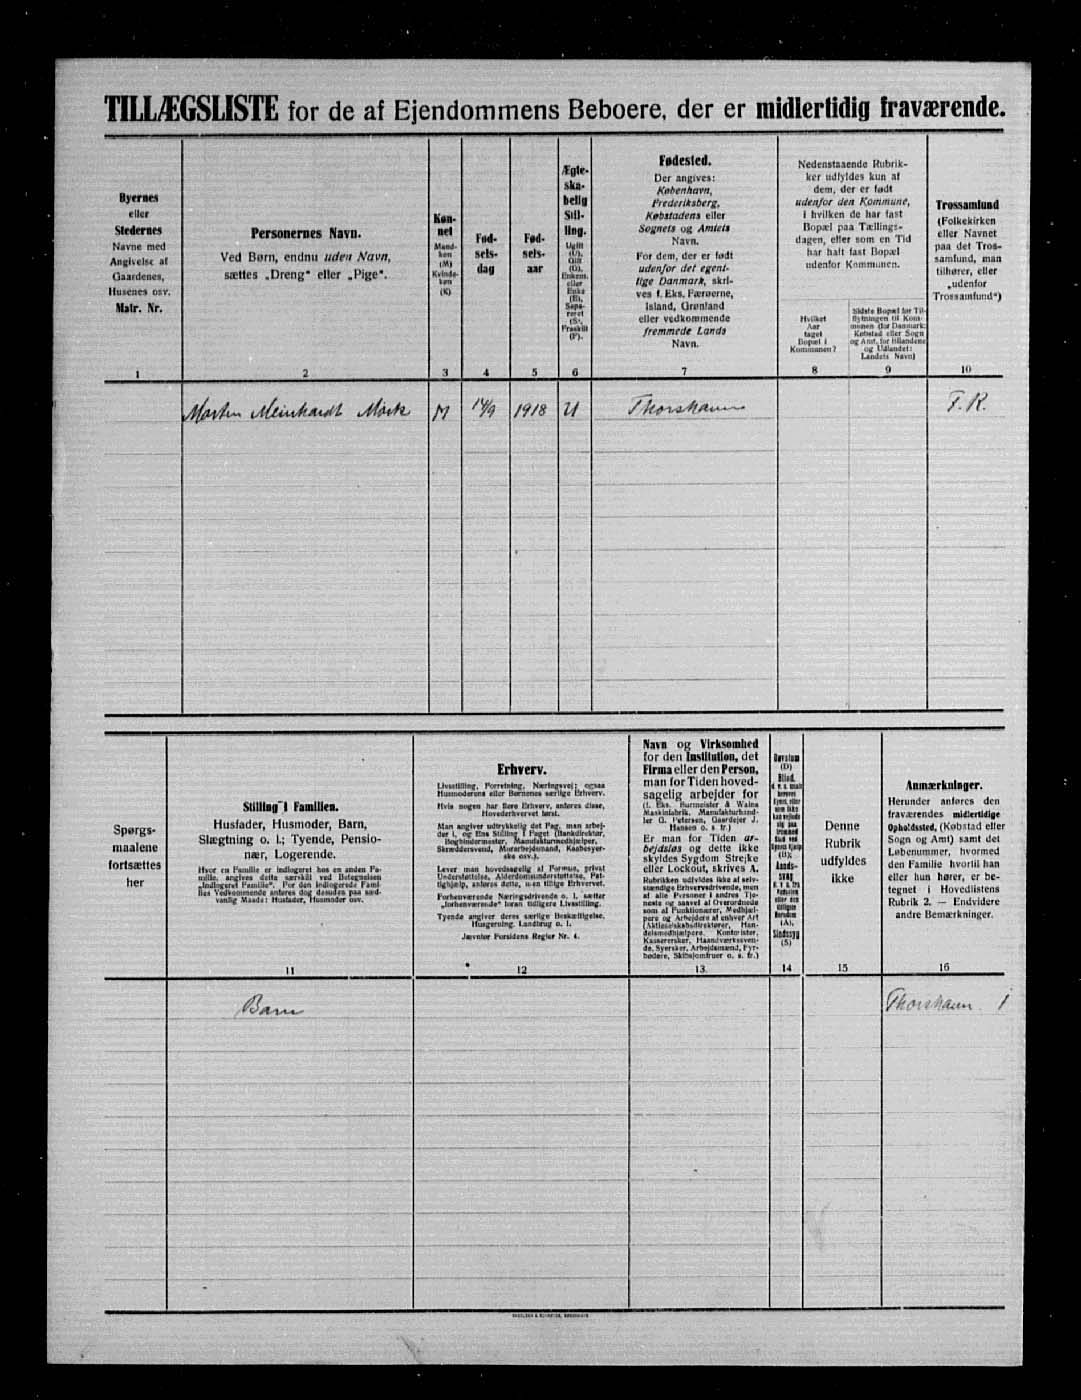 TILLÆGSLISTE for de af Ejendommens Beboere, der er midlertidig fraværende.
Byernes
eller
Stedernes
Navne med
Angivelse af
Gaardenes,
Husenes osv.
Matr. Nr.
1
Personernes Navn.
Ved Børn, endnu uden Navn,
sættes „Dreng“ eller „Pige“.
2
Køn-
net
Mand-
køn
(M)
Kvinde-
køn
(K)
3
Fød-
sels-
dag
4
Fød-
sels-
aar
5
Ægte-
ska-
belig
Stil-
ling.
Ugift
(U),
Gift
(G),
Enkem.
eller
Enke
(E),
Sepa-
reret
(S),
Fraskilt
(F).
6
Fødested.
Der angives:
København,
Frederiksberg,
Købstadens eller
Sognets og Amtets
Navn.
For dem, der er født
udenfor det egent-
lige Danmark, skri-
ves f. Eks. Færøerne,
Island, Grønland
eller vedkommende
fremmede Lands
Navn.
7
Nedenstaaende Rubrik-
ker udfyldes kun af
dem, der er født
udenfor den Kommune,
i hvilken de har fast
Bopæl paa Tællings-
dagen, eller som en Tid
har haft fast Bopæl
udenfor Kommunen.
Hvilket
Aar
taget
Bopæl i
Kommunen?
8
Sidste Bopæl før Til-
flytningen til Kom-
munen (for Danmark:
Købstad eller Sogn
og Amt, for Bilandene
og Udlandet:
Landets Navn)
9
Trossamfund
(Folkekirken
eller Navnet
paa det Tros-
samfund, man
tilhører, eller
„udenfor
Trossamfund“)
10
Morten Meinhardt Mörk M 14/9 1918 U Thorshavn F. K.
Spørgs-
maalene
fortsættes
her
Stilling i Familien.
Husfader, Husmoder, Barn,
Slægtning o. l.; Tyende, Pensio-
nær, Logerende.
Hvor en Familie er indlogeret hos en anden Fa-
milie, angives dette særskilt ved Betegnelsen
„Indlogeret Familie“. For den indlogerede Fami-
lies Vedkommende anføres dog desuden paa sæd-
vanlig Maade: Husfader, Husmoder osv.
11
Erhverv.
Livsstilling, Forretning, Næringsvej; ogsaa
Husmoderens eller Børnenes særlige Erhverv.
Hvis nogen har flere Erhverv, anføres disse,
Hovederhvervet først.
Man angiver udtrykkelig det Fag, man arbej-
der i, og Ens Stilling i Faget (Bankdirektør,
Bogbindermester, Manufakturmedhjælper,
Skræddersvend, Murarbejdsmand, Kaabesyer-
ske osv.).
Lever man hovedsagelig af Formue, privat
Understøttelse, Alderdomsunderstøttelse, Fat-
tighjælp, anføres dette, men tillige Erhvervet.
Forhenværende Næringsdrivende o. l. sætter
„forhenværende“ foran tidligere Livsstilling.
Tyende angiver deres særlige Beskæftigelse,
Husgerning, Landbrug o. l.
Jævnfør Forsidens Regler Nr. 4.
12
Navn og Virksomhed
for den Institution, det
Firma eller den Person,
man for Tiden hoved-
sagelig arbejder for
(f. Eks. Burmeister & Wains
Maskinfabrik, Manufakturhand-
ler G. Petersen, Gaardejer J.
Hansen o. s. fr.)
Er man for Tiden ar-
bejdsløs og dette ikke
skyldes Sygdom Strejke
eller Lockout, skrives A.
Rubrikken udfyldes ikke af selv-
stændige Erhvervsdrivende, men
af alle Personer i andres Tje-
neste og saavel af Overordnede
som af Funktionærer, Medhjæl-
pere og Arbejdere af enhver Art
(Aktieselskabsdirektører, Han-
delsmedhjælpere, Kontorister,
Kassererske, Haandværkssven-
de, Syersker, Arbejdsmænd, Fyr-
bødere, Skibsjomfruer o. s. fr.)
13.
Døvstum
(D)
Blind,
(B);
Aands-
svag
(A),
Sindssyg
(S)
14
Denne
Rubrik
udfyldes
ikke
15
Anmærkninger.
Herunder anføres den
fraværendes midlertidige
Opholdssted, (Købstad eller
Sogn og Amt) samt det
Løbenummer, hvormed
den Familie hvortil han
eller hun hører, er be-
tegnet i Hovedlistens
Rubrik 2. — Endvidere
andre Bemærkninger.
16
Barn Thorshavn. 1